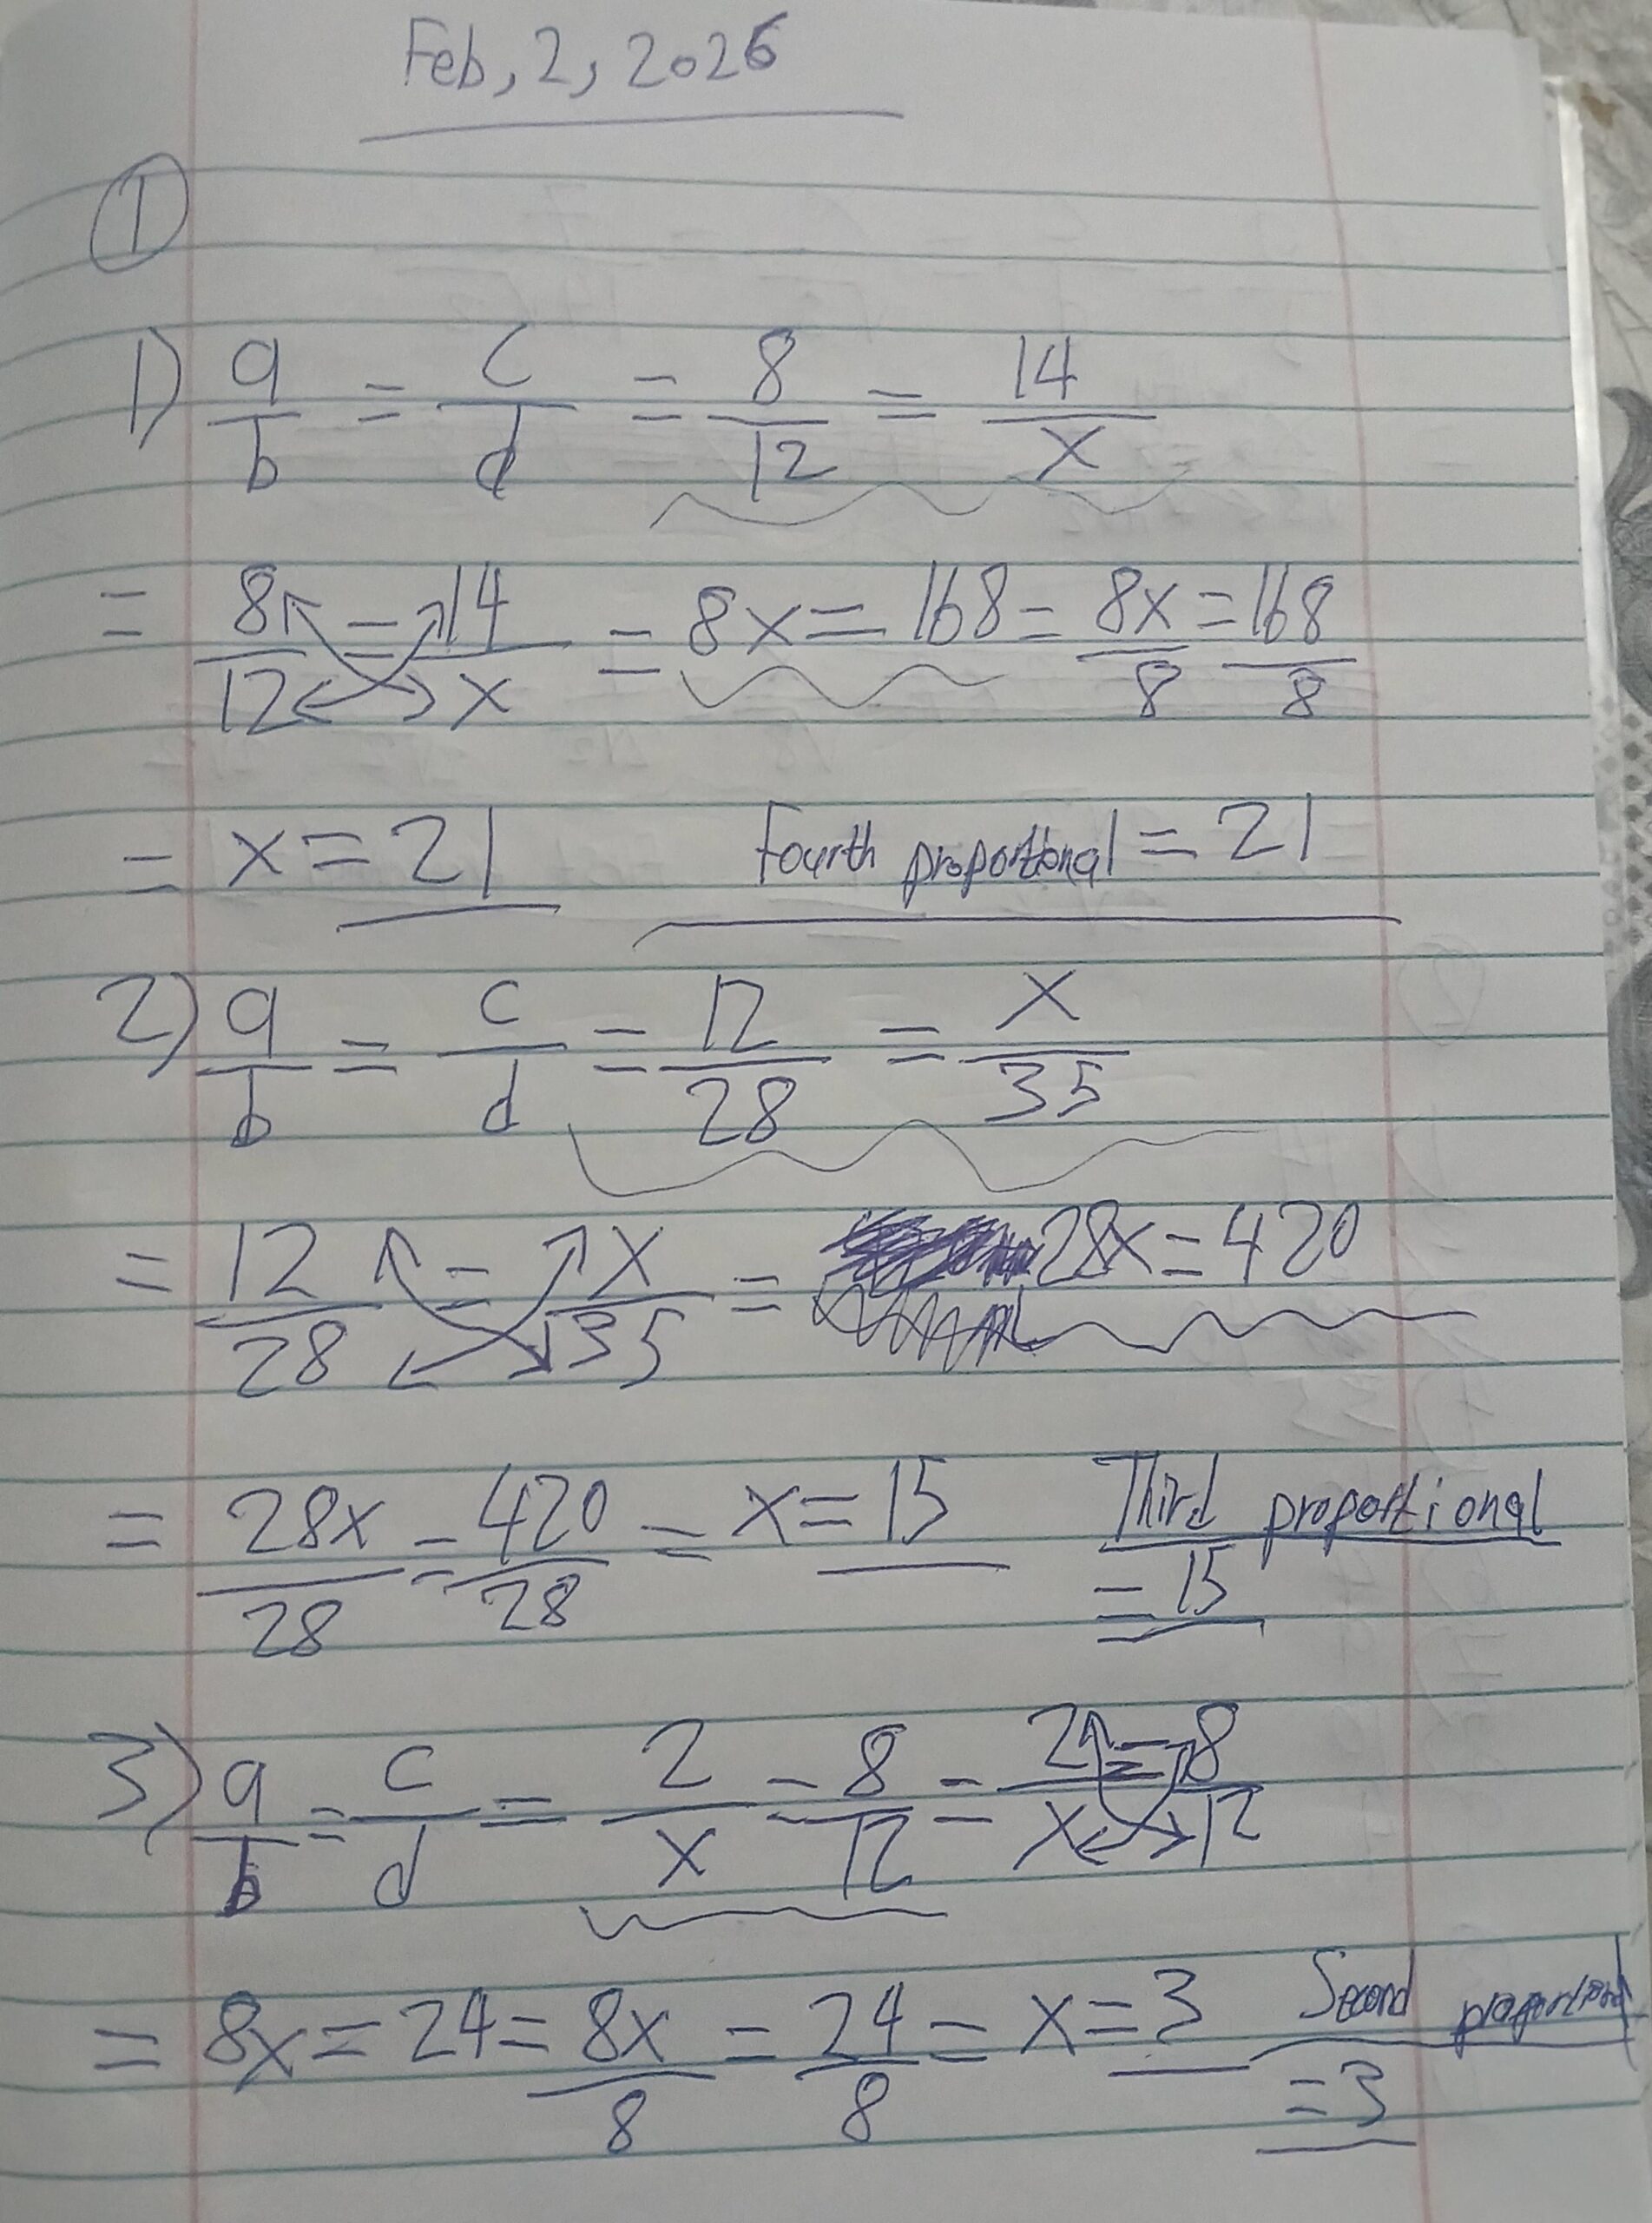 Feb, 2, 2026
①
1) a/b = c/d = 8/12 = 14/x
= 8/12 = 14/x = 8x = 168 = 8x/8 = 168/8
= x = 21 Fourth proportional = 21
2) a/b = c/d = 12/28 = x/35
= 12/28 = x/35 = 28x = 420
= 28x/28 = 420/28 = x = 15 Third proportional
= 15
3) a/b = c/d = 2/x = 8/12 = 2/x = 8/12
= 8x = 24 = 8x/8 = 24/8 = x = 3 Second proportional
= 3